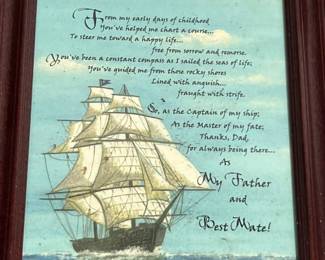 From my early days of childhood
You've helped me chart a course...
To steer me toward a happy life...
free from sorrow and remorse.
You've been a constant compass as I sailed the seas of life;
You've guided me from those rocky shores
Lined with anguish...
fraught with strife.
So, as the Captain of my ship;
As the Master of my fate;
Thanks, Dad,
for always being there...
As
My Father
and
Best Mate!